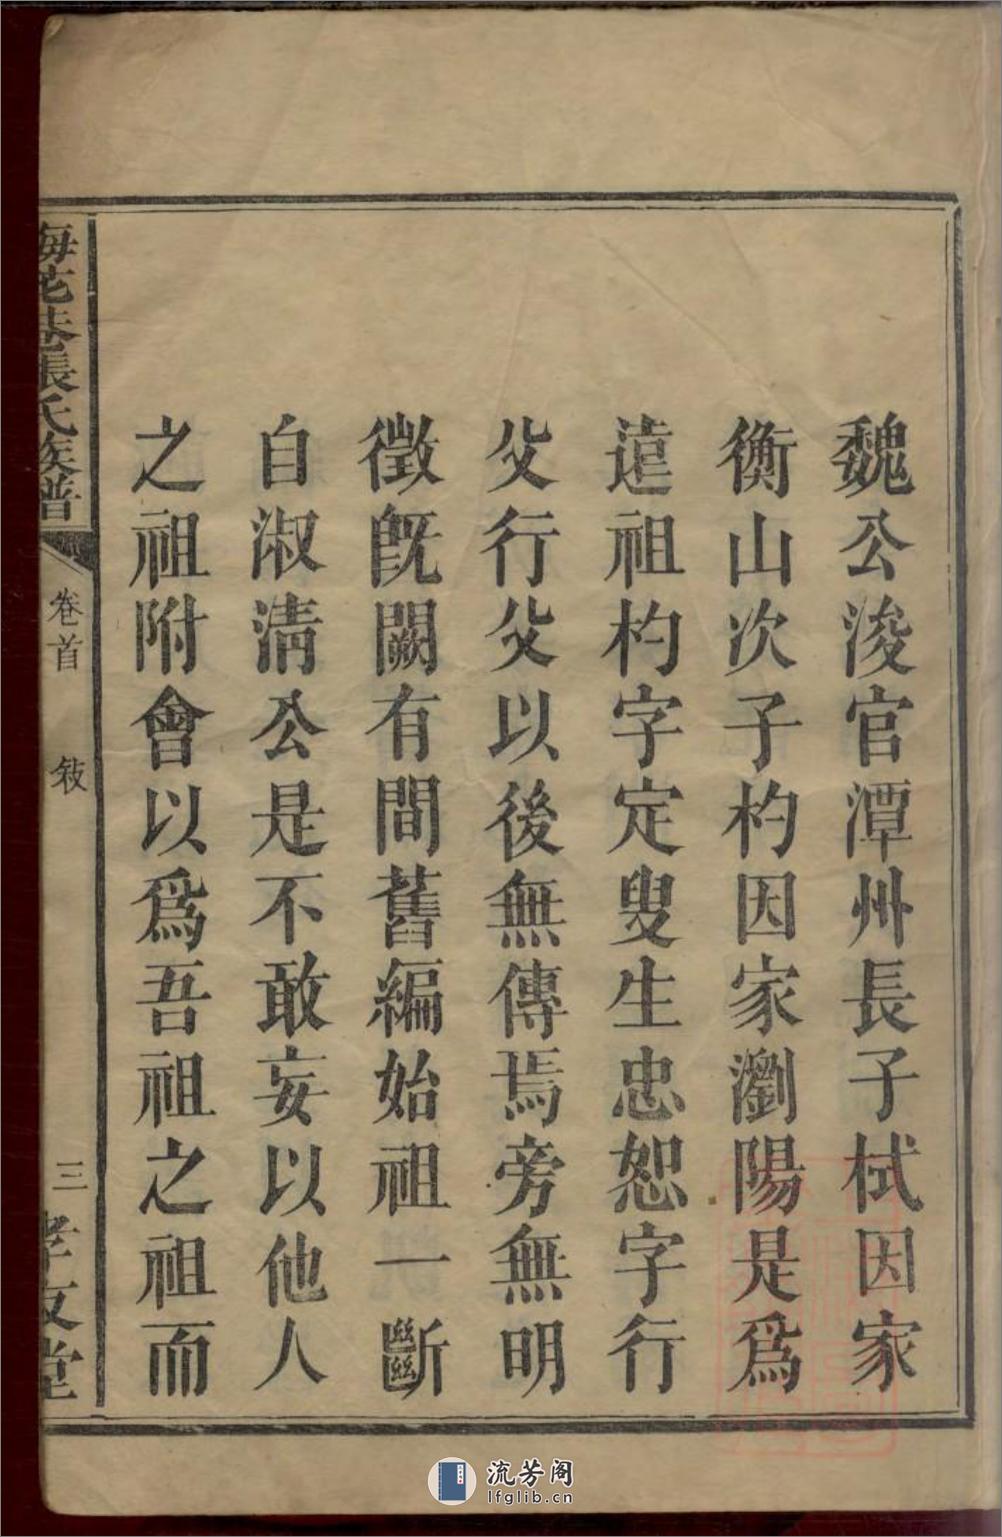 魏公浚官潭州長子栻因家
衡山次子杓因家瀏陽是爲
遠祖杓字定叟生忠恕字行
父行父以後無傳焉旁無明
徵旣闕有間舊編始祖一斷
自淑淸公是不敢妄以他人
之祖附會以爲吾祖之祖而
梅花巷張氏族譜
卷首
敍
三
孝友堂
流芳阁
lfglib.cn